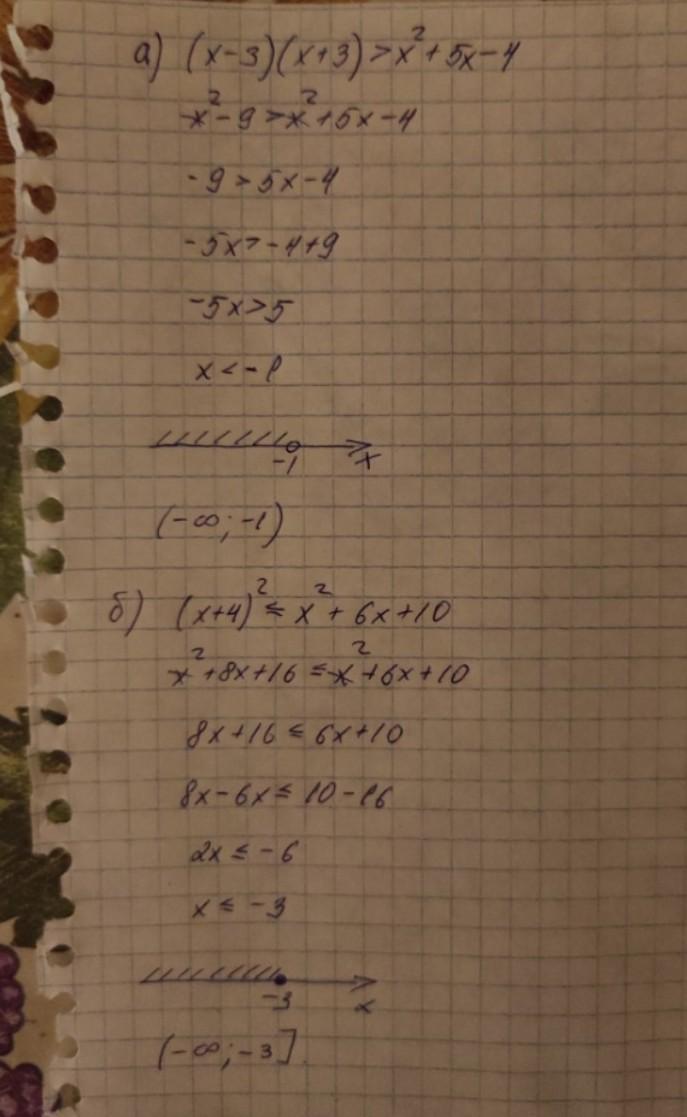 а) (x-3)(x+3)>x²+5x-4
x²-9>x²+5x-4
-9>5x-4
-5x>-4+9
-5x>5
x<-1
-1
x
(-∞;-1)
б) (x+4)²≤x²+6x+10
x²+8x+16≤x²+6x+10
8x+16≤6x+10
8x-6x≤10-16
2x≤-6
x≤-3
-3
x
(-∞;-3].